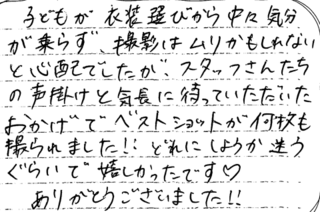 子どもが 衣装選びから中々気分
が乗らず、撮影はムリかもしれない
と心配でしたが、スタッフさんたち
の声掛けと気長に待っていただいた
おかげでベストショットが何枚も
撮られました!! どれにしようか迷う
ぐらいで嬉しかったです♡
ありがとうございました!!